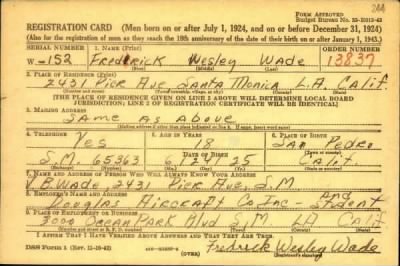 244
FORM APPROVED
Budget Bureau No. 33-R012-43
REGISTRATION CARD (Men born on or after July 1, 1924, and on or before December 31, 1924)
(Also for the registration of men as they reach the 18th anniversary of the date of their birth on or after January 1, 1943.)
SERIAL NUMBER 1. NAME (Print) ORDER NUMBER
W-152 Frederick Wesley Wade 13837
(First) (Middle) (Last)
2. PLACE OF RESIDENCE (Print)
2431 Pier Ave Santa Monica L.A. Calif.
(Number and street) (Town, township, village, or city) (County) (State)
[THE PLACE OF RESIDENCE GIVEN ON LINE 2 ABOVE WILL DETERMINE LOCAL BOARD
JURISDICTION; LINE 2 OF REGISTRATION CERTIFICATE WILL BE IDENTICAL]
3. MAILING ADDRESS
Same as above
[Mailing address if other than place indicated on line 2. If same, insert word same]
4. TELEPHONE 5. AGE IN YEARS 6. PLACE OF BIRTH
Yes 18 San Pedro
DATE OF BIRTH (Town or county)
S.M. 65363 6/24/25 Calif.
(Exchange) (Number) (Mo.) (Day) (Yr.) (State or country)
7. NAME AND ADDRESS OF PERSON WHO WILL ALWAYS KNOW YOUR ADDRESS
V.B. Wade, 2431 Pier Ave, S.M
8. EMPLOYER'S NAME AND ADDRESS
Douglas Aircraft Co Inc - and Student
9. PLACE OF EMPLOYMENT OR BUSINESS
3000 Ocean Park Blvd S.M. LA Calif
(Number and street or R. F. D. number) (Town) (County) (State)
I AFFIRM THAT I HAVE VERIFIED ABOVE ANSWERS AND THAT THEY ARE TRUE.
DSS Form 1 (Rev. 11-16-42) (OVER) Fredrick Wesley Wade